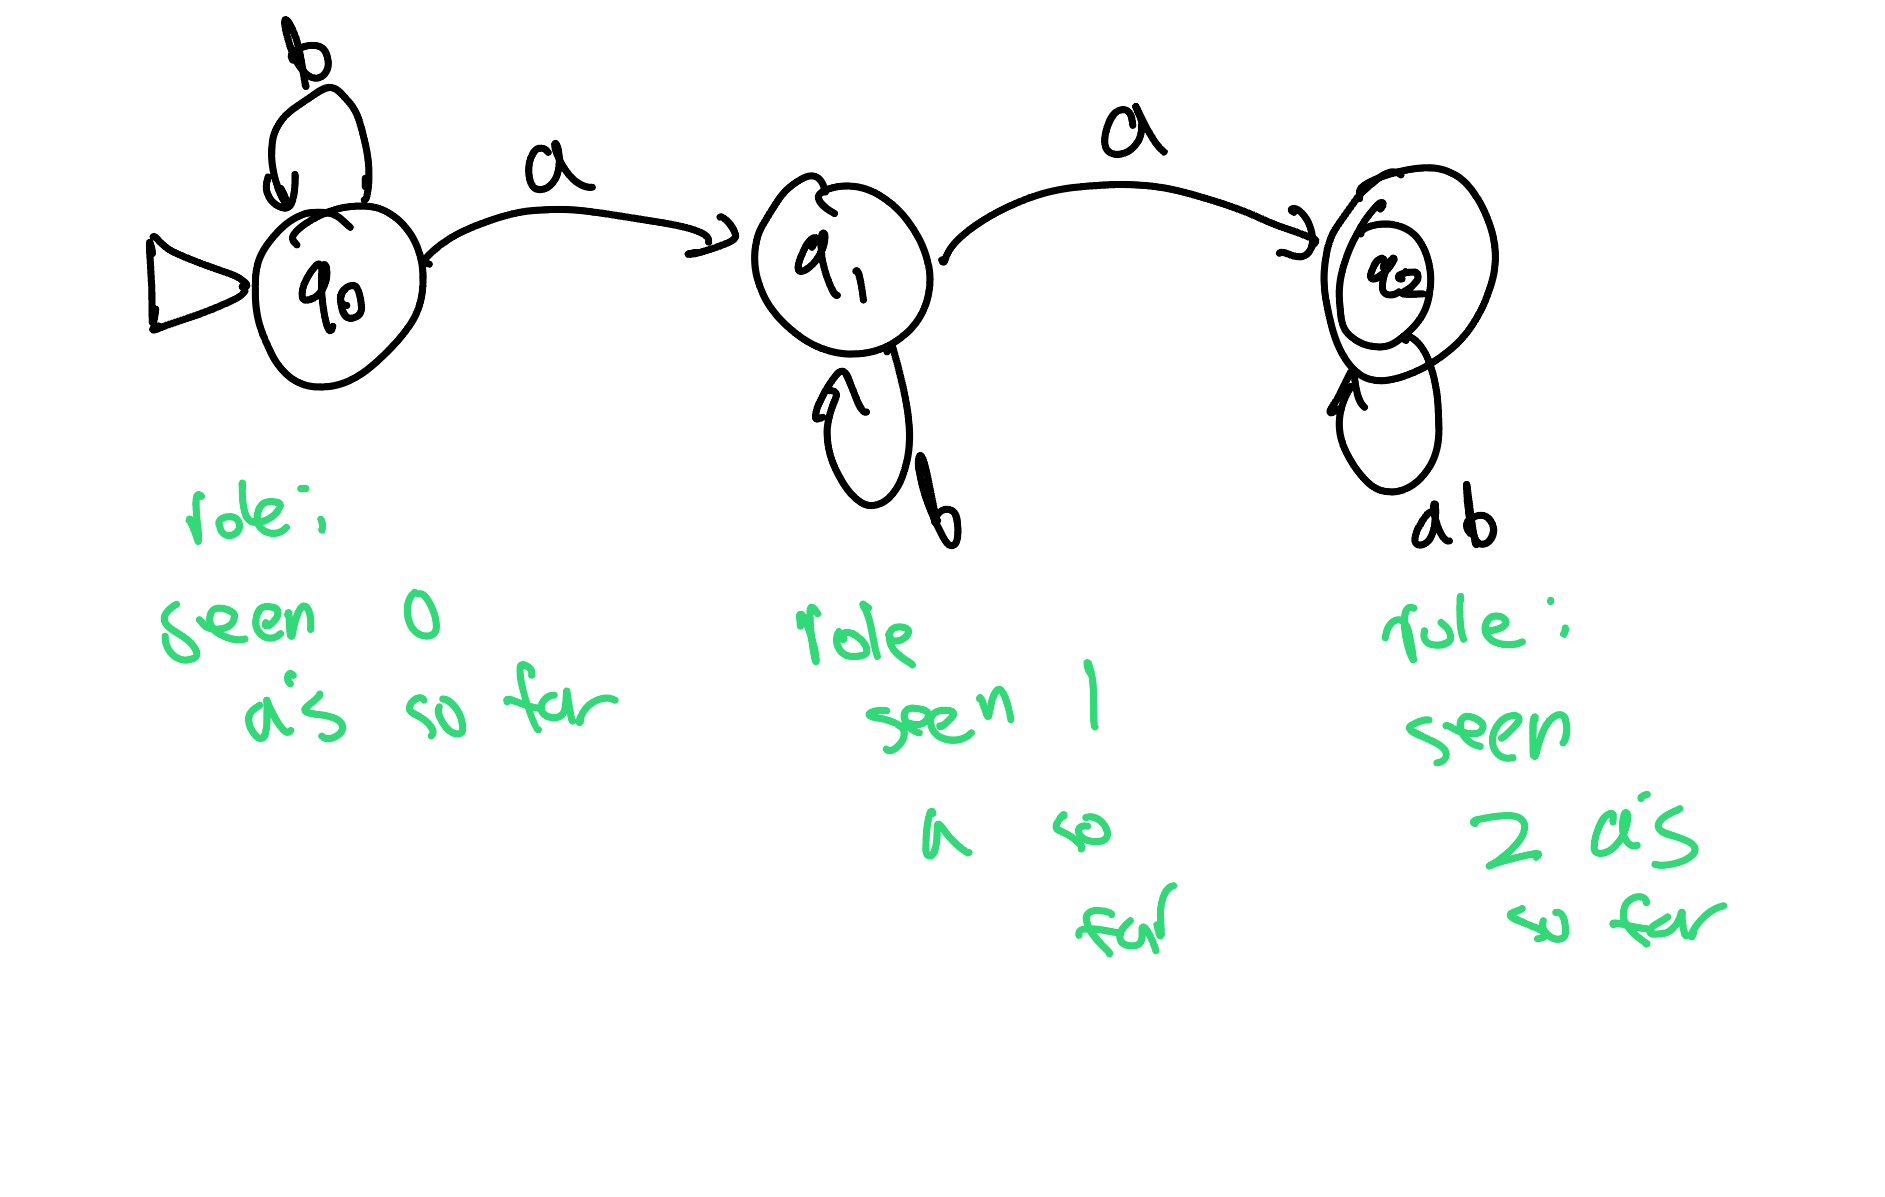 b
a
a
q0
q1
q2
b
ab
role:
seen 0
a's so far
role
seen 1
a so
far
role:
seen
2 a's
so far